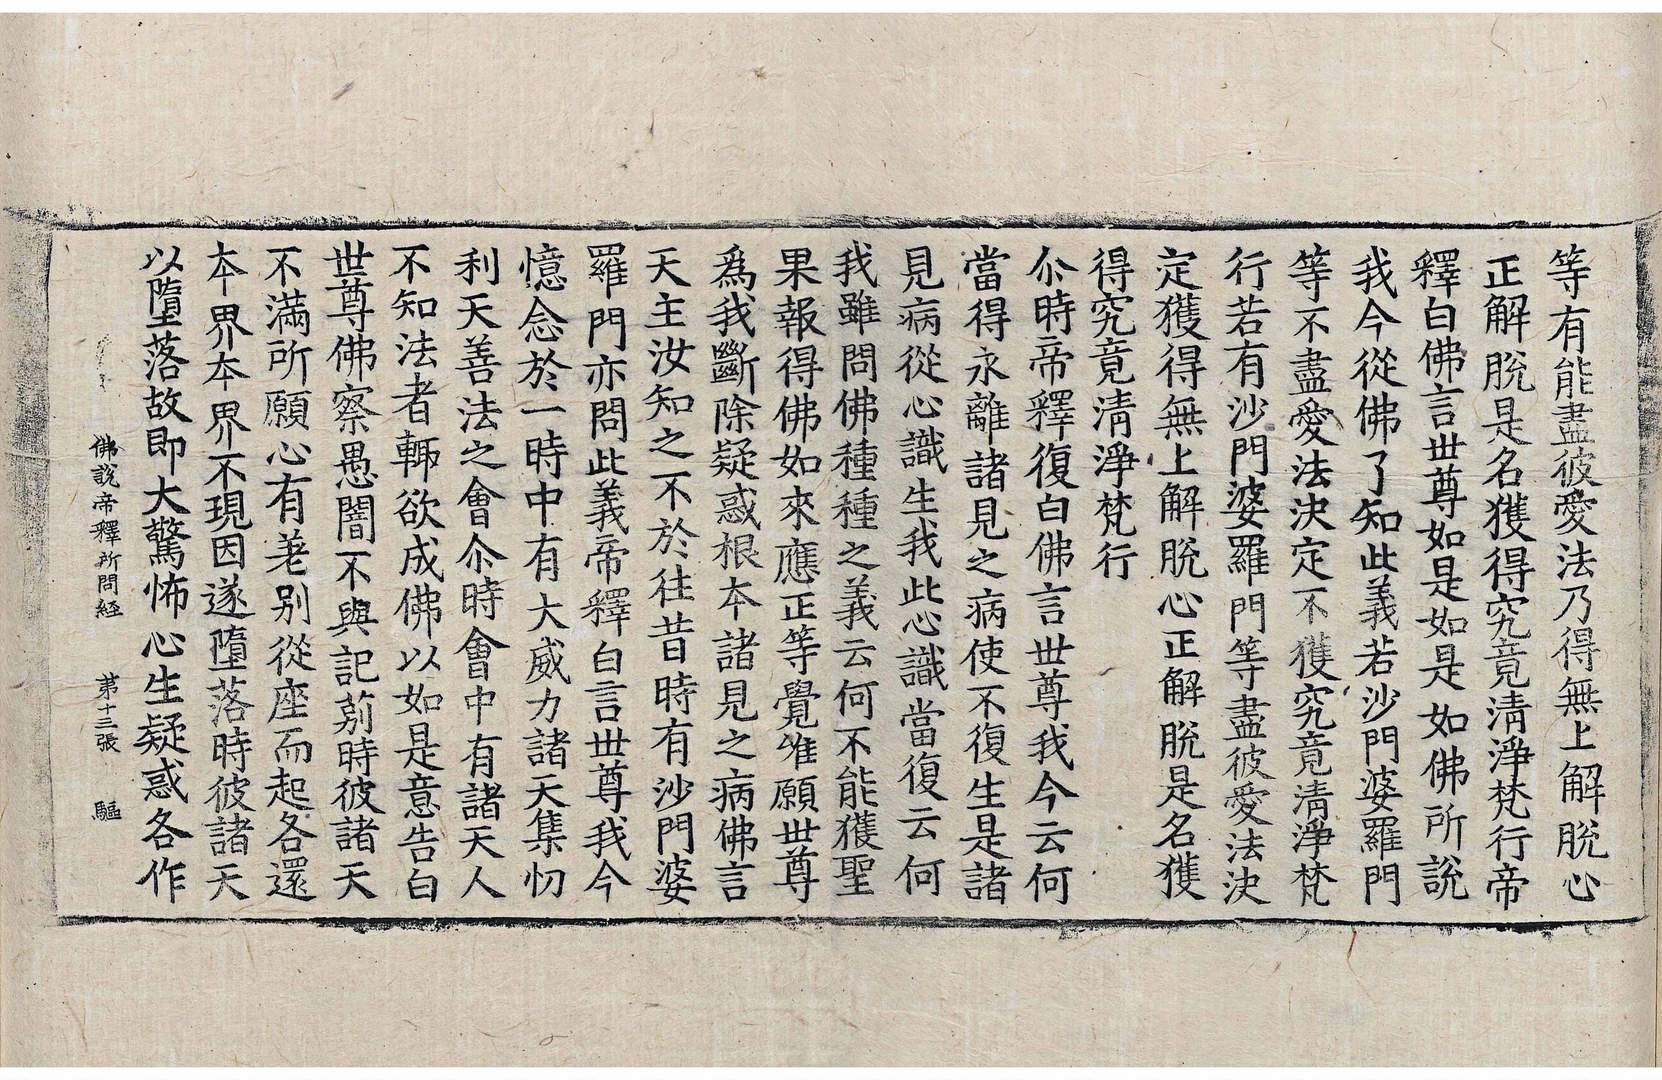 等有能盡彼愛法乃得無上解脫心
正解脫是名獲得究竟清淨梵行帝
釋白佛言世尊如是如是如佛所說
我今從佛了知此義若沙門婆羅門
等不盡愛法決定不獲究竟清淨梵
行若有沙門婆羅門等盡彼愛法決
定獲得無上解脫心正解脫是名獲
得究竟清淨梵行
尒時帝釋復白佛言世尊我今云何
當得永離諸見之病使不復生是諸
見病從心識生我此心識當復云何
我雖問佛種種之義云何不能獲聖
果報得佛如來應正等覺唯願世尊
爲我斷除疑惑根本諸見之病佛言
天主汝知之不於往昔時有沙門婆
羅門亦問此義帝釋白言世尊我今
憶念於一時中有大威力諸天集忉
利天善法之會尒時會中有諸天人
不知法者輙欲成佛以如是意告白
世尊佛察愚闇不與記莂時彼諸天
不滿所願心有差別從座而起各還
本界本界不現因遂墮落時彼諸天
以墮落故即大驚怖心生疑惑各作
佛說帝釋所問經 第十三張 驅